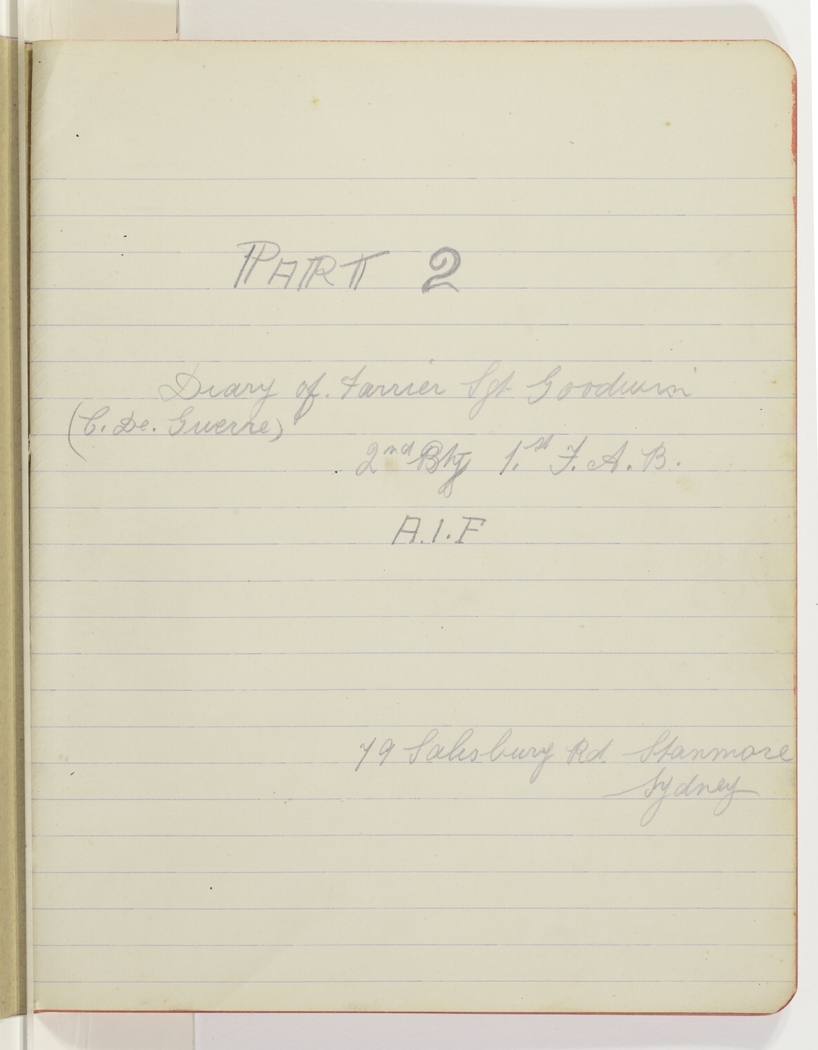 PART 2
Diary of. Farrier Sgt Goodwin
(C. De. Guerre)
2nd Bty 1.st F.A.B.
A.I.F
79 Salisbury Rd Stanmore
Sydney